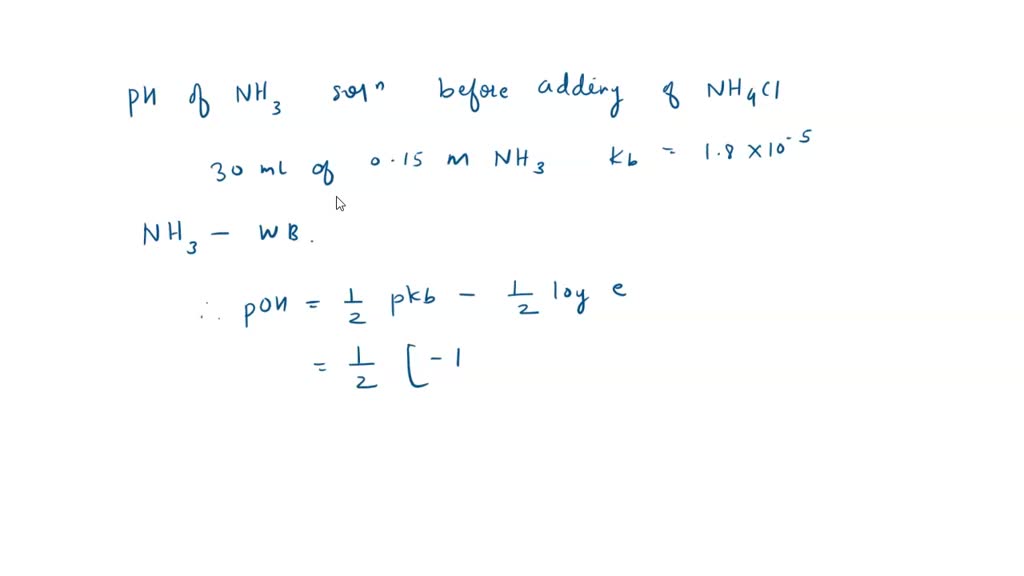 pH of NH3 solⁿ before adding of NH4Cl
30 ml of 0.15 M NH3 Kb = 1.8 × 10⁻⁵
NH3 – WB.
∴ pOH = 1/2 pkb – 1/2 log c
= 1/2 [ -1